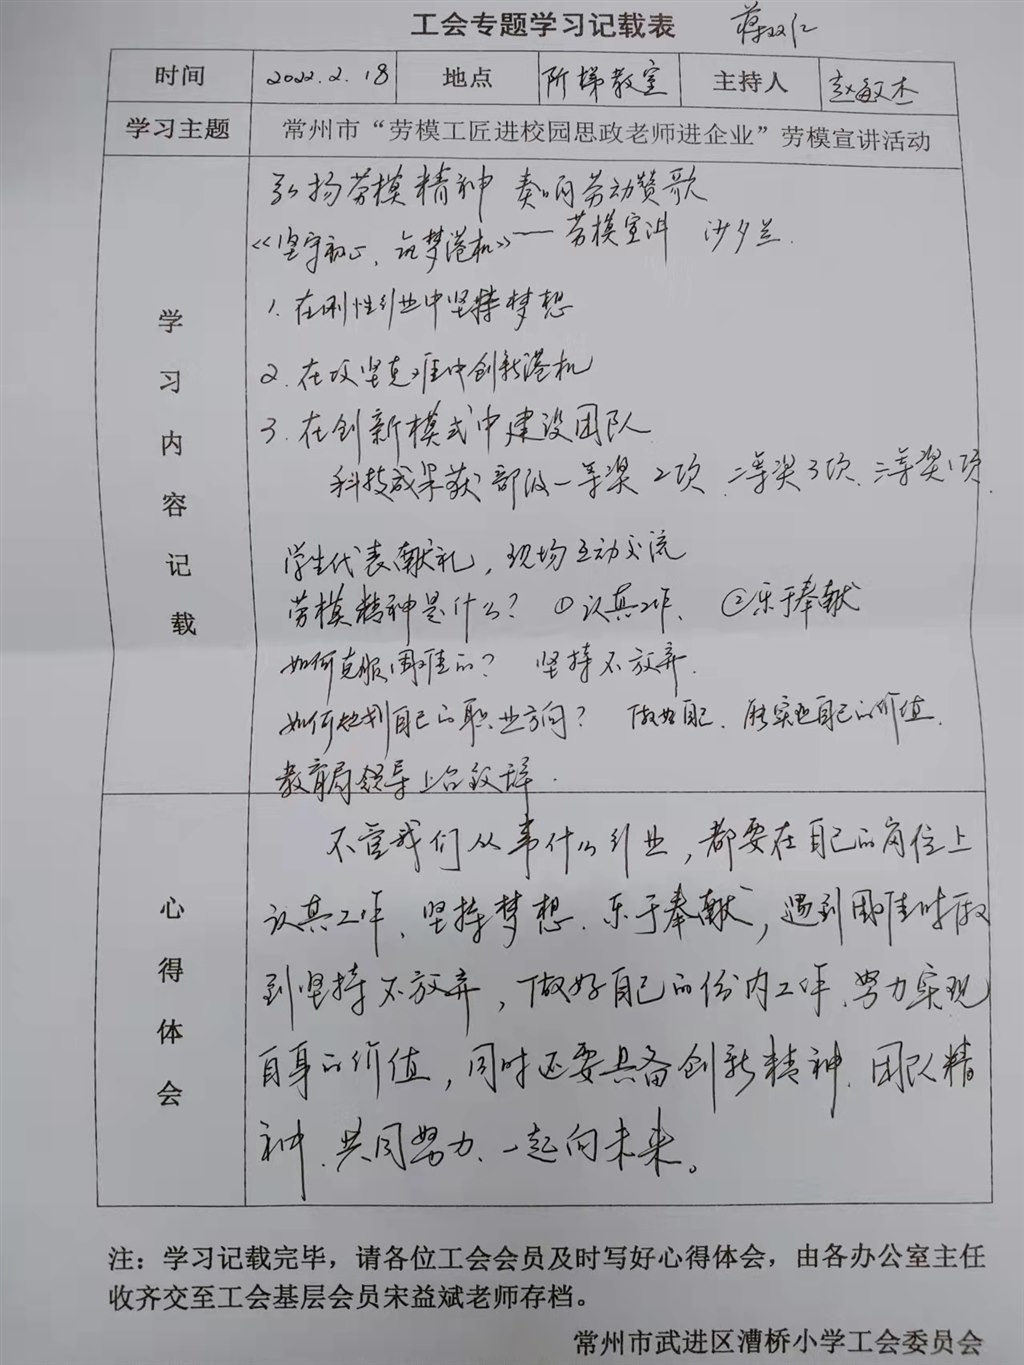 工会专题学习记载表 蒋双仁
时间 2022.2.18 地点 阶梯教室 主持人 赵敏杰
学习主题 常州市“劳模工匠进校园思政老师进企业”劳模宣讲活动
学习内容记载
弘扬劳模精神 奏响劳动赞歌
《坚守初心、筑梦港机》——劳模宣讲 沙夕兰.
1. 在刚性行业中坚持梦想
2. 在攻坚克难中创新港机
3. 在创新模式中建设团队
科技成果获部级一等奖2项、二等奖3项、三等奖1项.
学生代表献礼，现场互动交流
劳模精神是什么？ ①认真工作、 ②乐于奉献
如何克服困难的？ 坚持不放弃.
如何规划自己的职业方向？ 做好自己. 能实现自己的价值.
教育局领导上台致辞.
心得体会
不管我们从事什么行业，都要在自己的岗位上
认真工作、坚持梦想、乐于奉献，遇到困难时做
到坚持不放弃，做好自己的份内工作、努力实现
自身的价值，同时还要具备创新精神、团队精
神、共同努力、一起向未来。
注：学习记载完毕，请各位工会会员及时写好心得体会，由各办公室主任
收齐交至工会基层会员宋益斌老师存档。
常州市武进区漕桥小学工会委员会